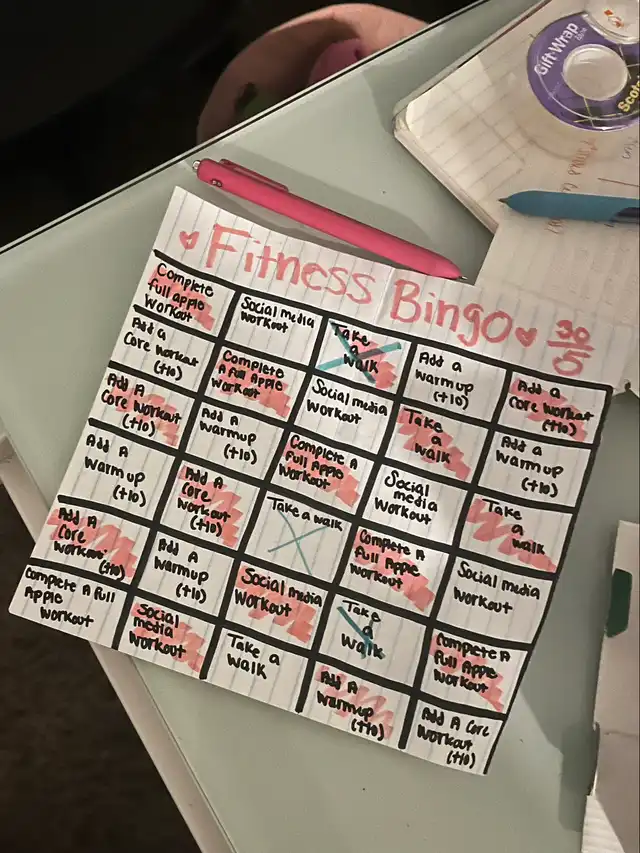 Fitness Bingo
30
5
Complete
full apple
Workout
Social media
Workout
Take
a
walk
Add a
warmup
(+10)
Add a
Core Workout
(+10)
Add a
Core Workout
(+10)
Complete
A full Apple
Workout
Social media
Workout
Take
a
walk
Add A
Warmup
(+10)
Add A
Core Workout
(+10)
Add A
Warmup
(+10)
Complete A
full Apple
Workout
Social
media
Workout
Take
a
walk
Add A
Warmup
(+10)
Add A
Core
Workout
(+10)
Take a walk
Complete A
full Apple
Workout
Social media
Workout
Add A
Core
Workout
(+10)
Add A
Warmup
(+10)
Social media
Workout
Take
a
Walk
Complete A
full Apple
Workout
Complete A full
Apple
Workout
Social
media
Workout
Take a
Walk
Add A
Warmup
(+10)
Add A Core
Workout
(+10)
Gift-Wrap